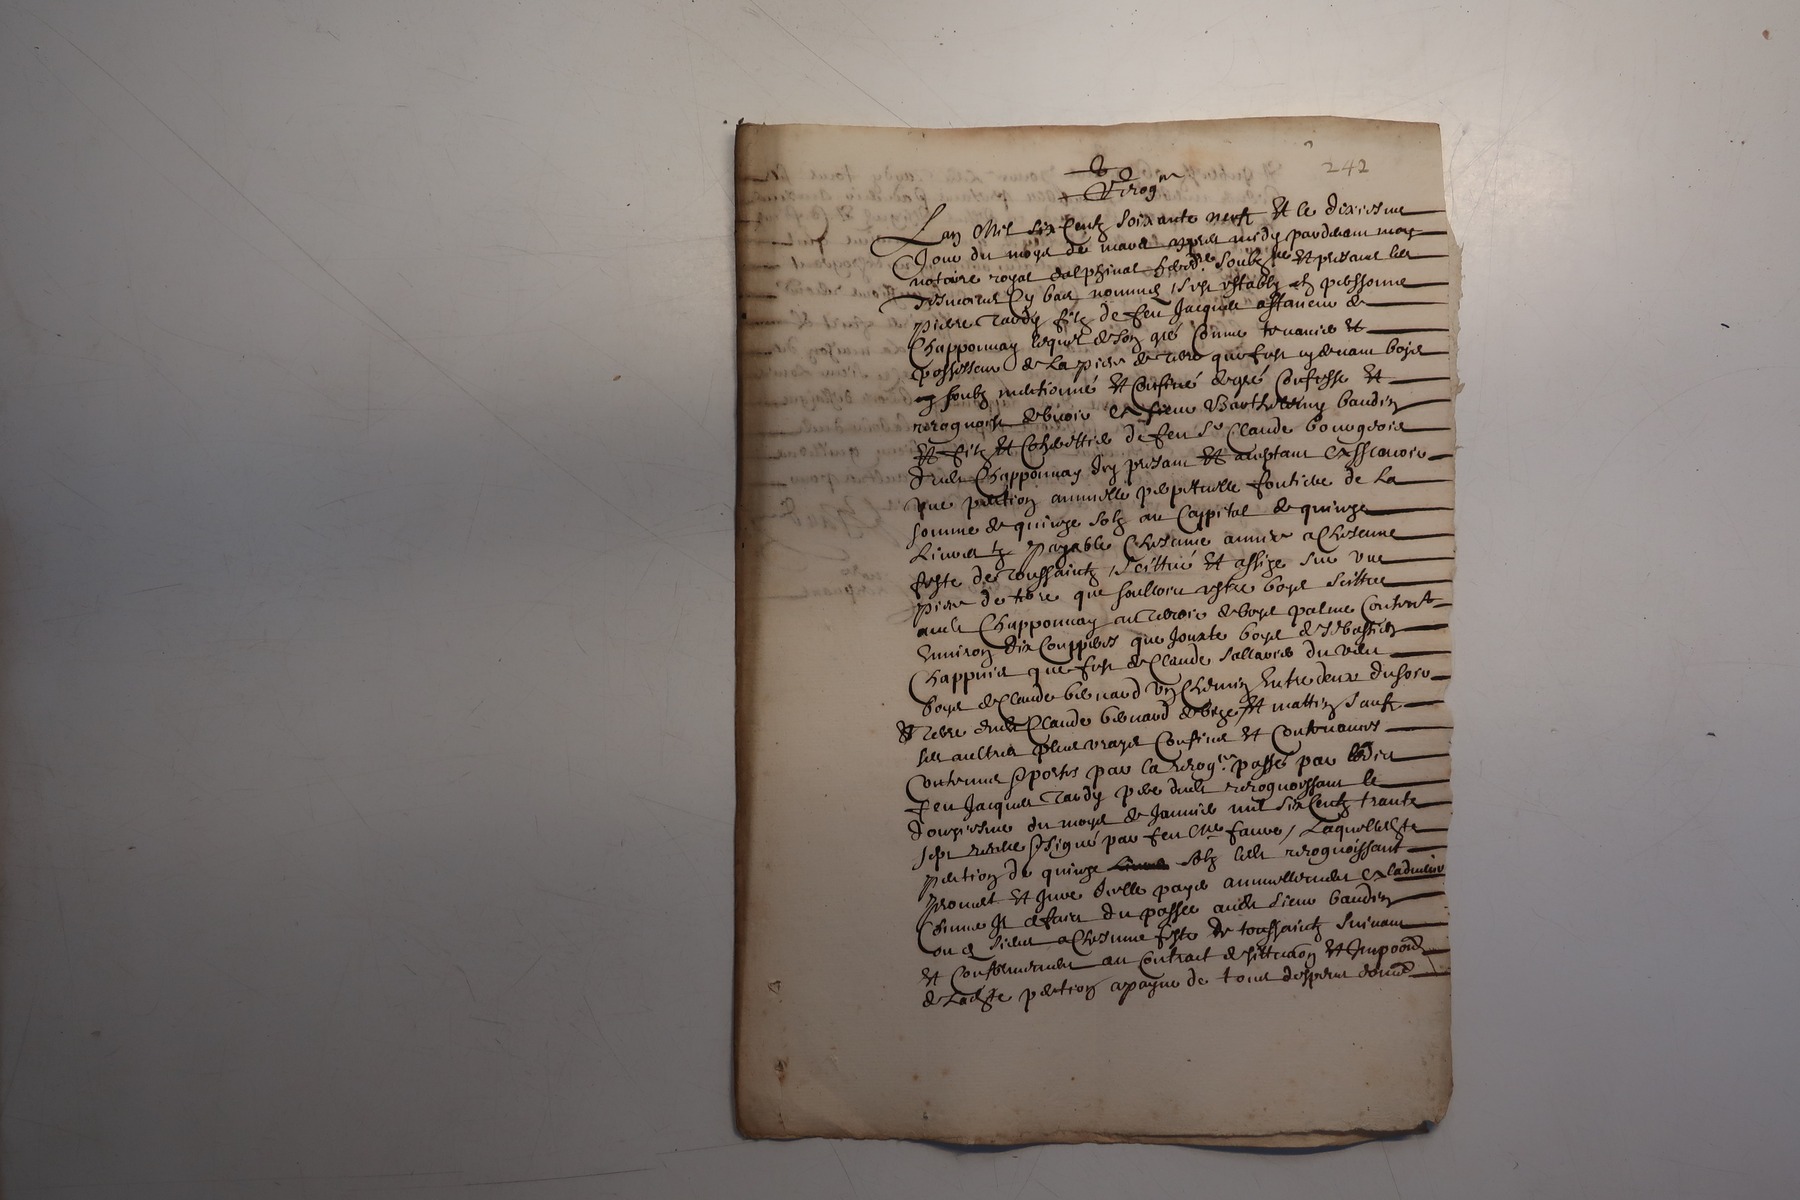 242
Recog.on
Lan Mil six Centz soixante neufz Et le dixiesme
Jour du moys de mars appres midy pardevant moy
notaire royal dalphinal hered.re soubz.ne Et presant les
tesmoins Cy bas nommes s'est estably en perssonne
Pierre Tardy filz de feu Jacques
Chapponnay lequel de son gré Comme tenancier Et
possesseur de la piece de terre que fust cydevant boys
cy soubz mentionné Et Confiné de gré Confesse Et
recognoist debvoir a sieur Barthelemy baudin
Et filz Et Cohérittier de feu S.r Claude bourgeois
dudit Chapponnay Icy presant Et aceptant Assçavoir
Une pention annuelle perpetuelle fonciere de La
somme de quinze solz au Cappital de quinze
Livres tz Payable Chescune annee a Chescune
feste de Toussaintz scittué Et assize sur une
piece de terre que soulloit estre boys scittue
audit Chapponnay au terroir de boys palme Contenant
Environ dix Couppees que Jouxte boys de Sebastien
Chappuis que fust de Claude sallavier du vent
boys de Claude bernard Un Chemin Entredeux du soir
Terre dudit Claude bernard de bize Et mattin Sauf
ses aultres plus vrays Confins Et Contenances
Contenus portes par la recog.on passé par ledit
feu Jacques Tardy pere dudit recognoissant le
du moys de Janvier mil six Centz trante
sept receue signé par feu M.e faure / Laquelle d.te
pention de quinze solz ledit recognoissant
promet Et Jure Icelle payer annuellement a ladvenir
Comme Il a faict du passé audit sieur baudin
ou a siens a Chescune feste de toussaintz suivant
Et Conformement au Contract de scittuaon Et Impoon
de Lad.te pention a payne de tous despens domm.